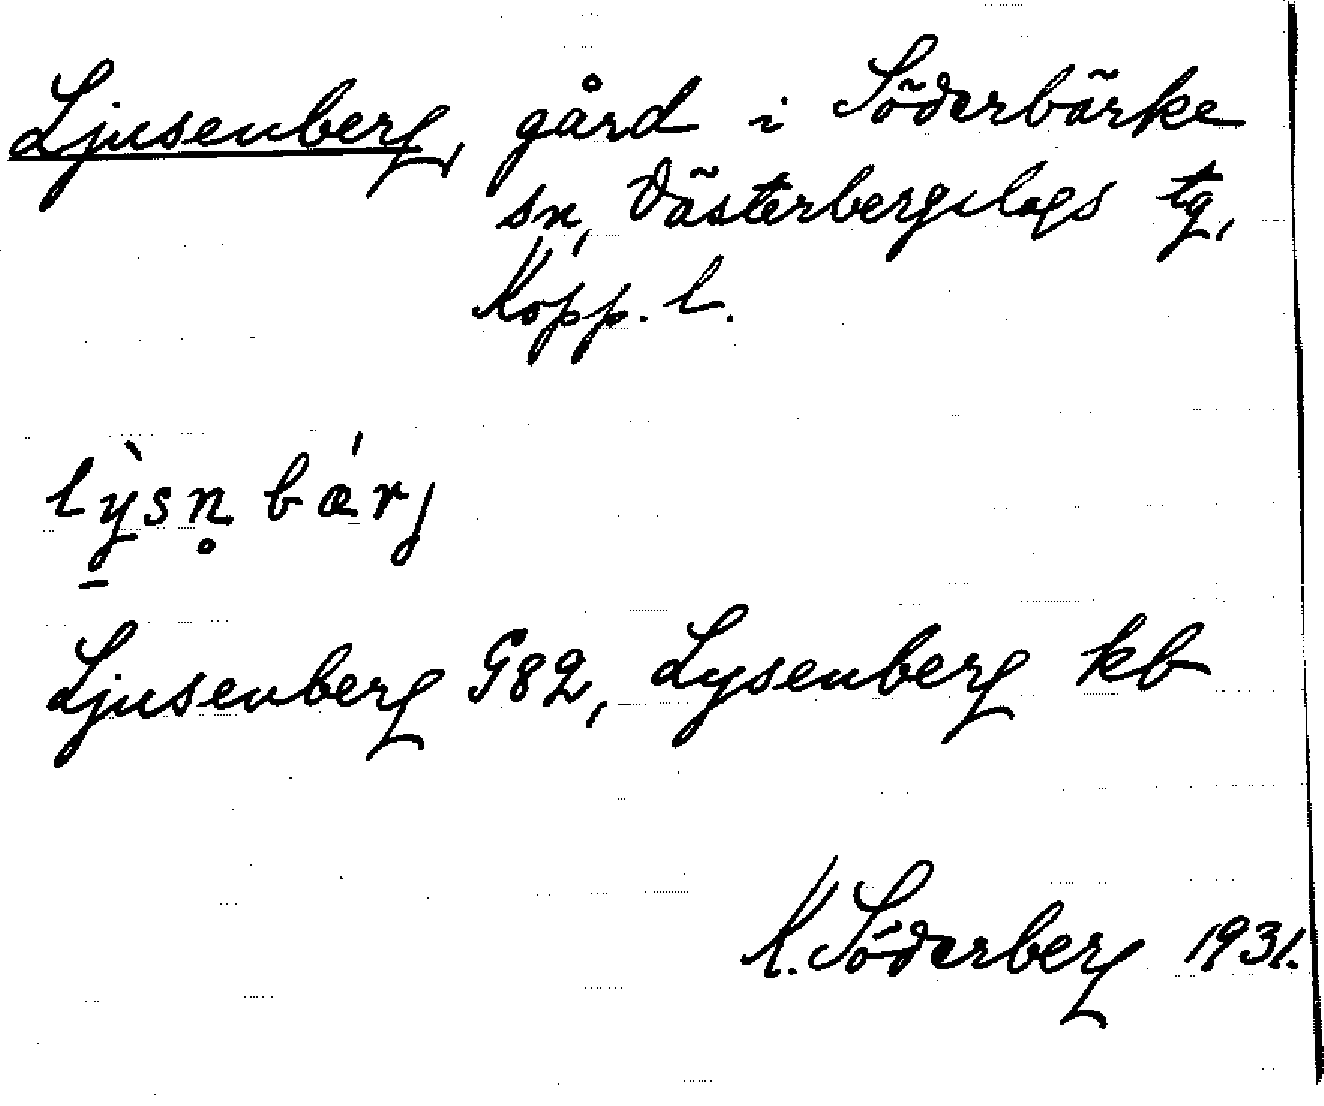 Ljusenberg, gård i Söderbärke
sn, Västerbergslags tg,
Kopp. l.
lỳ̠sn̥bǽrj
Ljusenberg G82, Lysenberg kb
K. Söderberg 1931.